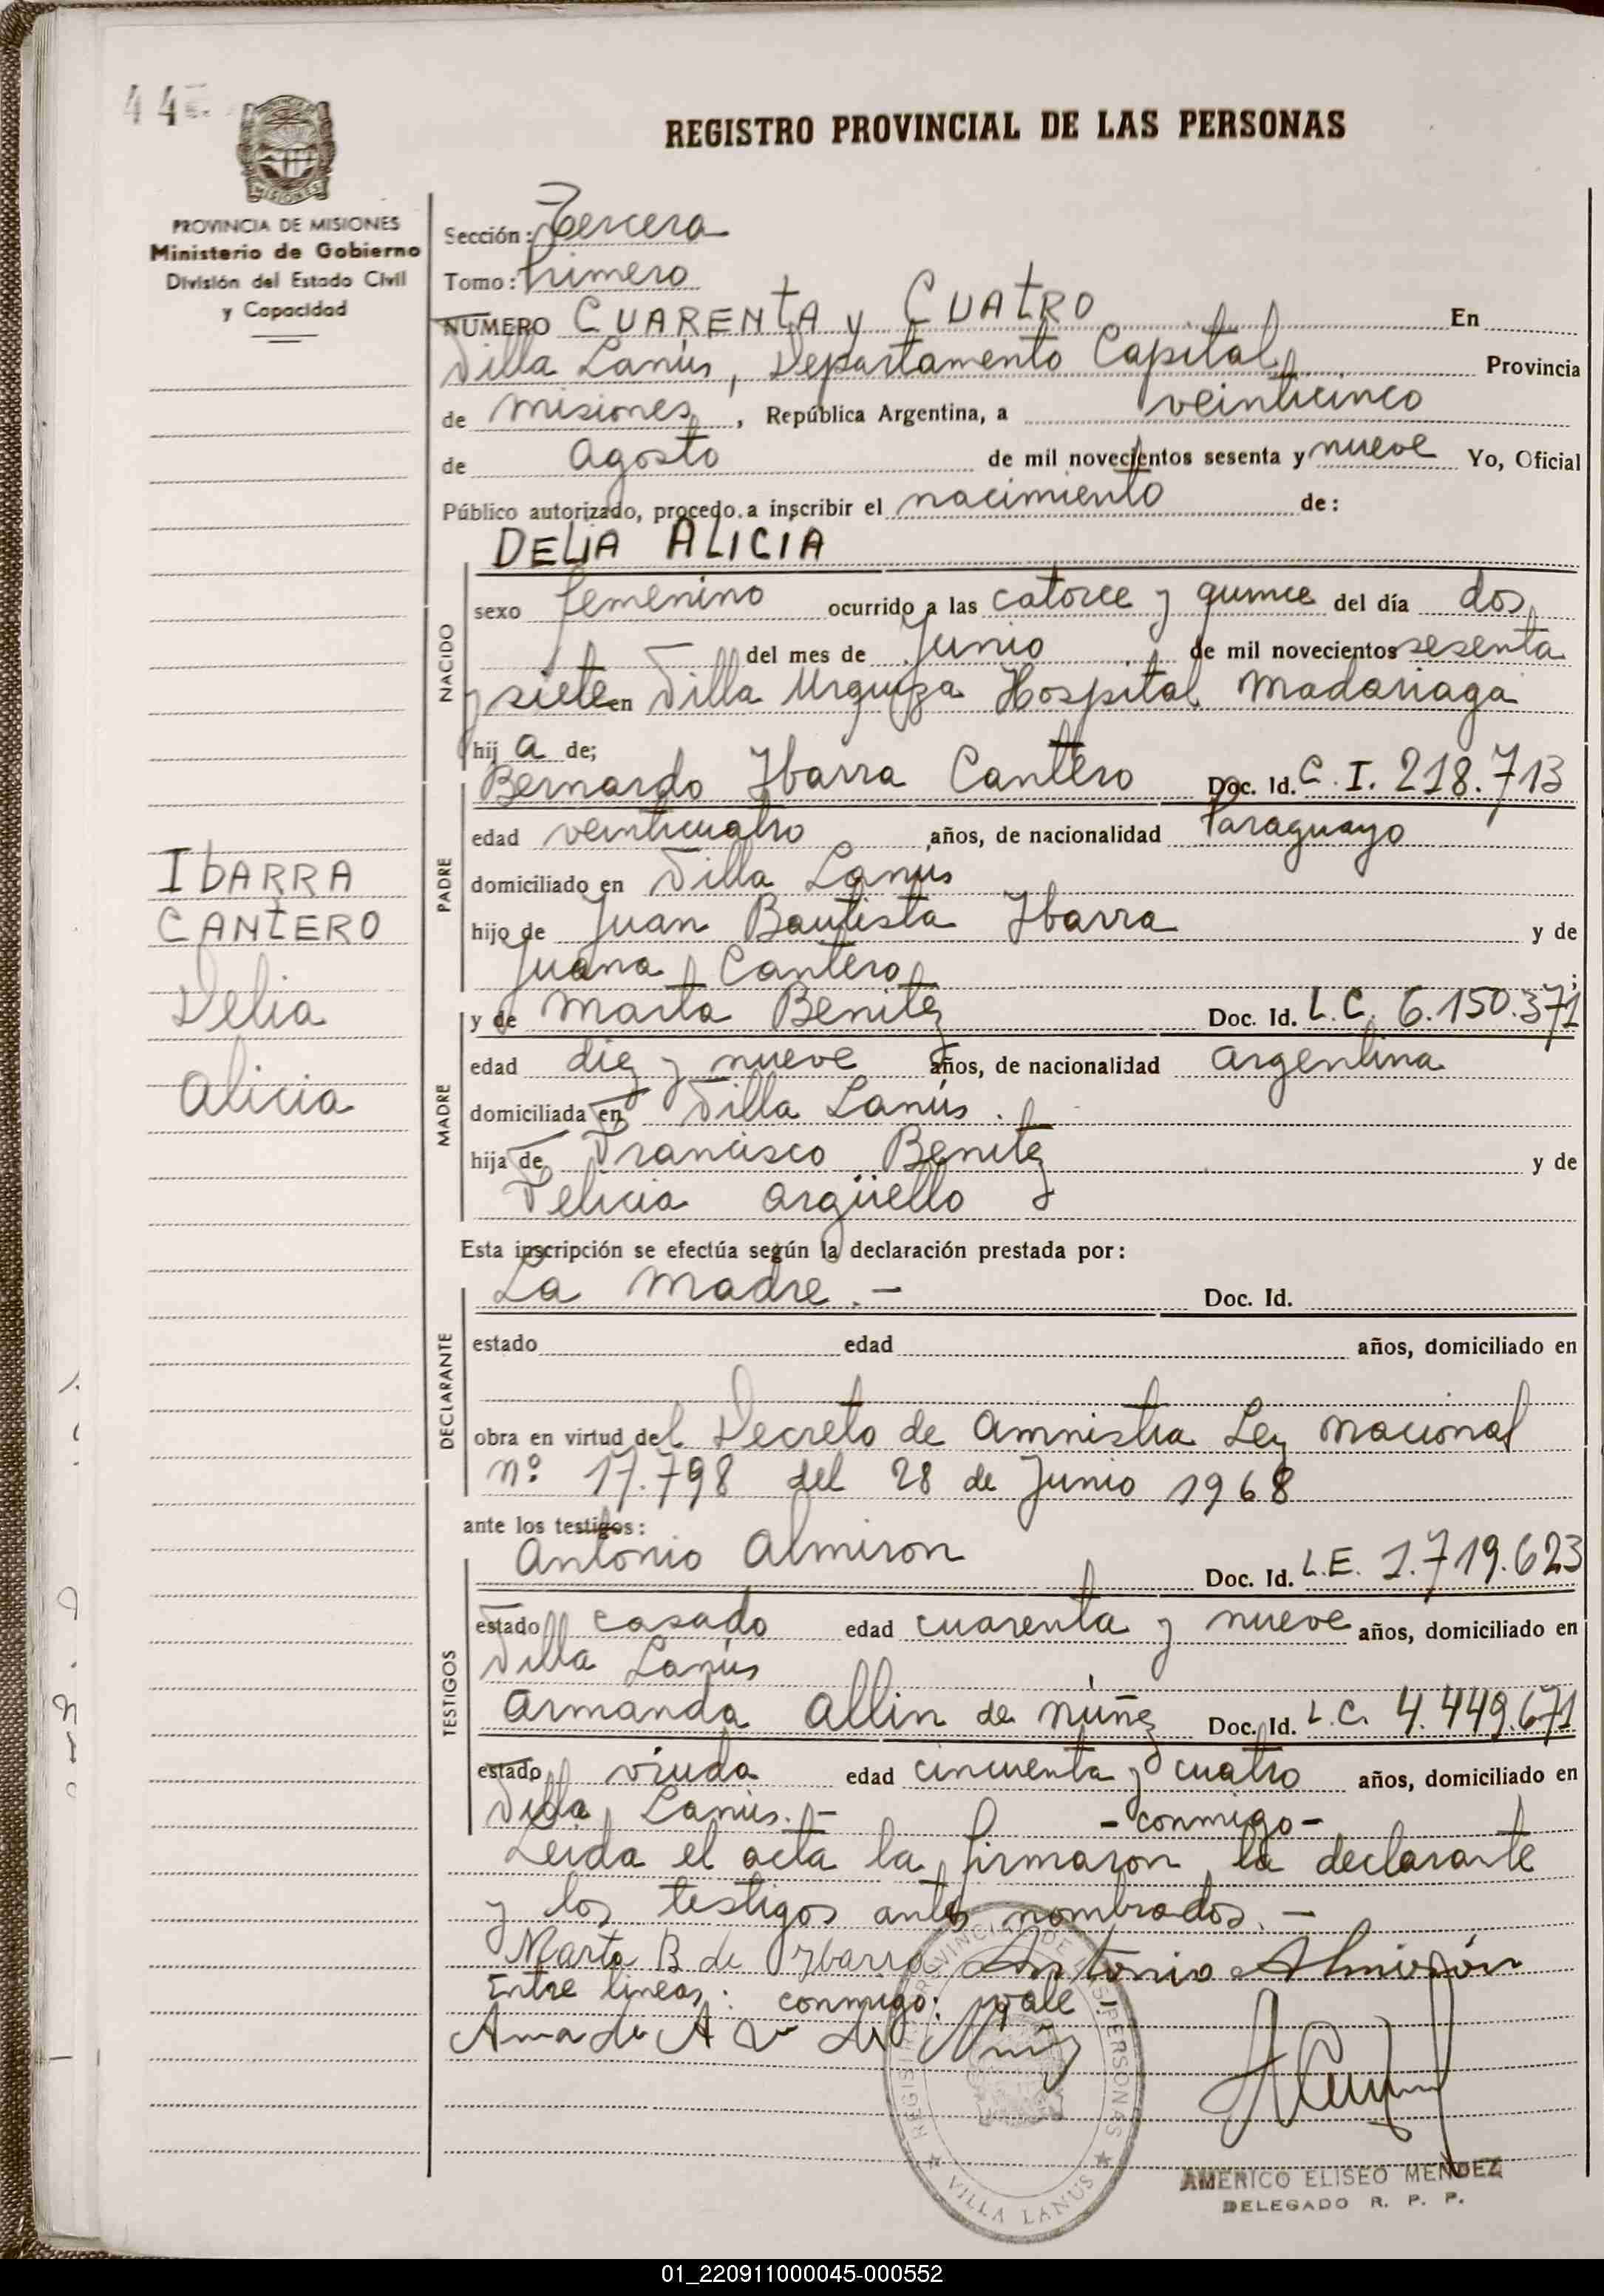 44
REGISTRO PROVINCIAL DE LAS PERSONAS
MISIONES
PROVINCIA DE MISIONES
Ministerio de Gobierno
División del Estado Civil
y Capacidad
Sección: Tercera
Tomo: Primero
NUMERO CUARENtA y CUAtRO En
Villa Lanús, Departamento Capital, Provincia
de misiones, República Argentina, a veinticinco
de agosto de mil novecientos sesenta y nueve Yo, Oficial
Público autorizado, procedo a inscribir el nacimiento de:
DELIA ALICIA
NACIDO
sexo femenino ocurrido a las catorce y quince del día dos
del mes de Junio de mil novecientos sesenta
y siete en Villa Urquiza Hospital Madariaga
hij a de;
PADRE
Bernardo Ibarra Cantero Doc. Id. C. I. 218.713
edad veinticuatro años, de nacionalidad Paraguayo
domiciliado en Villa Lanús
hijo de Juan Bautista Ibarra y de
Juana Cantero
IbARRA
CANtERO
Delia
Alicia
MADRE
y de Marta Benitez Doc. Id. L.C. 6.150.371
edad diez y nueve años, de nacionalidad argentina
domiciliada en Villa Lanús.
hija de Francisco Benitez y de
Felicia Argüello
Esta inscripción se efectúa según la declaración prestada por:
DECLARANTE
La madre.- Doc. Id.
estado edad años, domiciliado en
obra en virtud del Decreto de amnistia Ley nacional
nº 17.798 del 28 de Junio 1968
ante los testigos:
TESTIGOS
Antonio Almiron Doc. Id. L.E. 1.719.623
estado casado edad cuarenta y nueve años, domiciliado en
Villa Lanús
Armanda Allin de Núñez Doc. Id. L.C. 4.449.671
estado viuda edad cincuenta y cuatro años, domiciliado en
Villa Lanús.- -conmigo-
Leida el acta la firmaron la declarante
y los testigos antes nombrados.-
Marta B de Ybarra Antonio Almirón
Entre lineas: conmigo: vale
REGISTRO PROVINCIAL DE LAS PERSONAS
VILLA LANUS
AMERICO ELISEO MENDEZ
DELEGADO R. P. P.
01_220911000045-000552